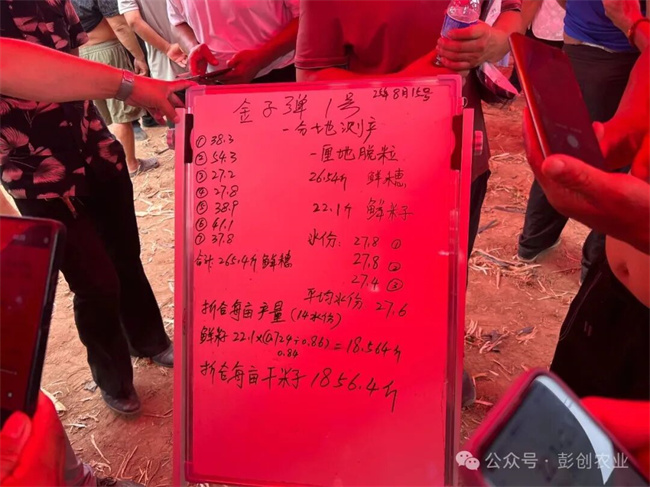 金子弹1号 25年8月15号
一分地测产
① 38.3 一厘地脱粒
② 54.3
③ 27.2 26.54斤 鲜穗
④ 27.8
⑤ 38.9 22.1斤 鲜籽
⑥ 41.1
⑦ 37.8 水份: 27.8 ①
合计 265.4斤鲜穗 27.8 ②
27.4 ③
平均水份 27.6
折合每亩产量 (14水份)
鲜籽 22.1×(0.724÷0.86) = 18.564斤
0.84
折合每亩干籽 1856.4斤
公众号·彭创农业